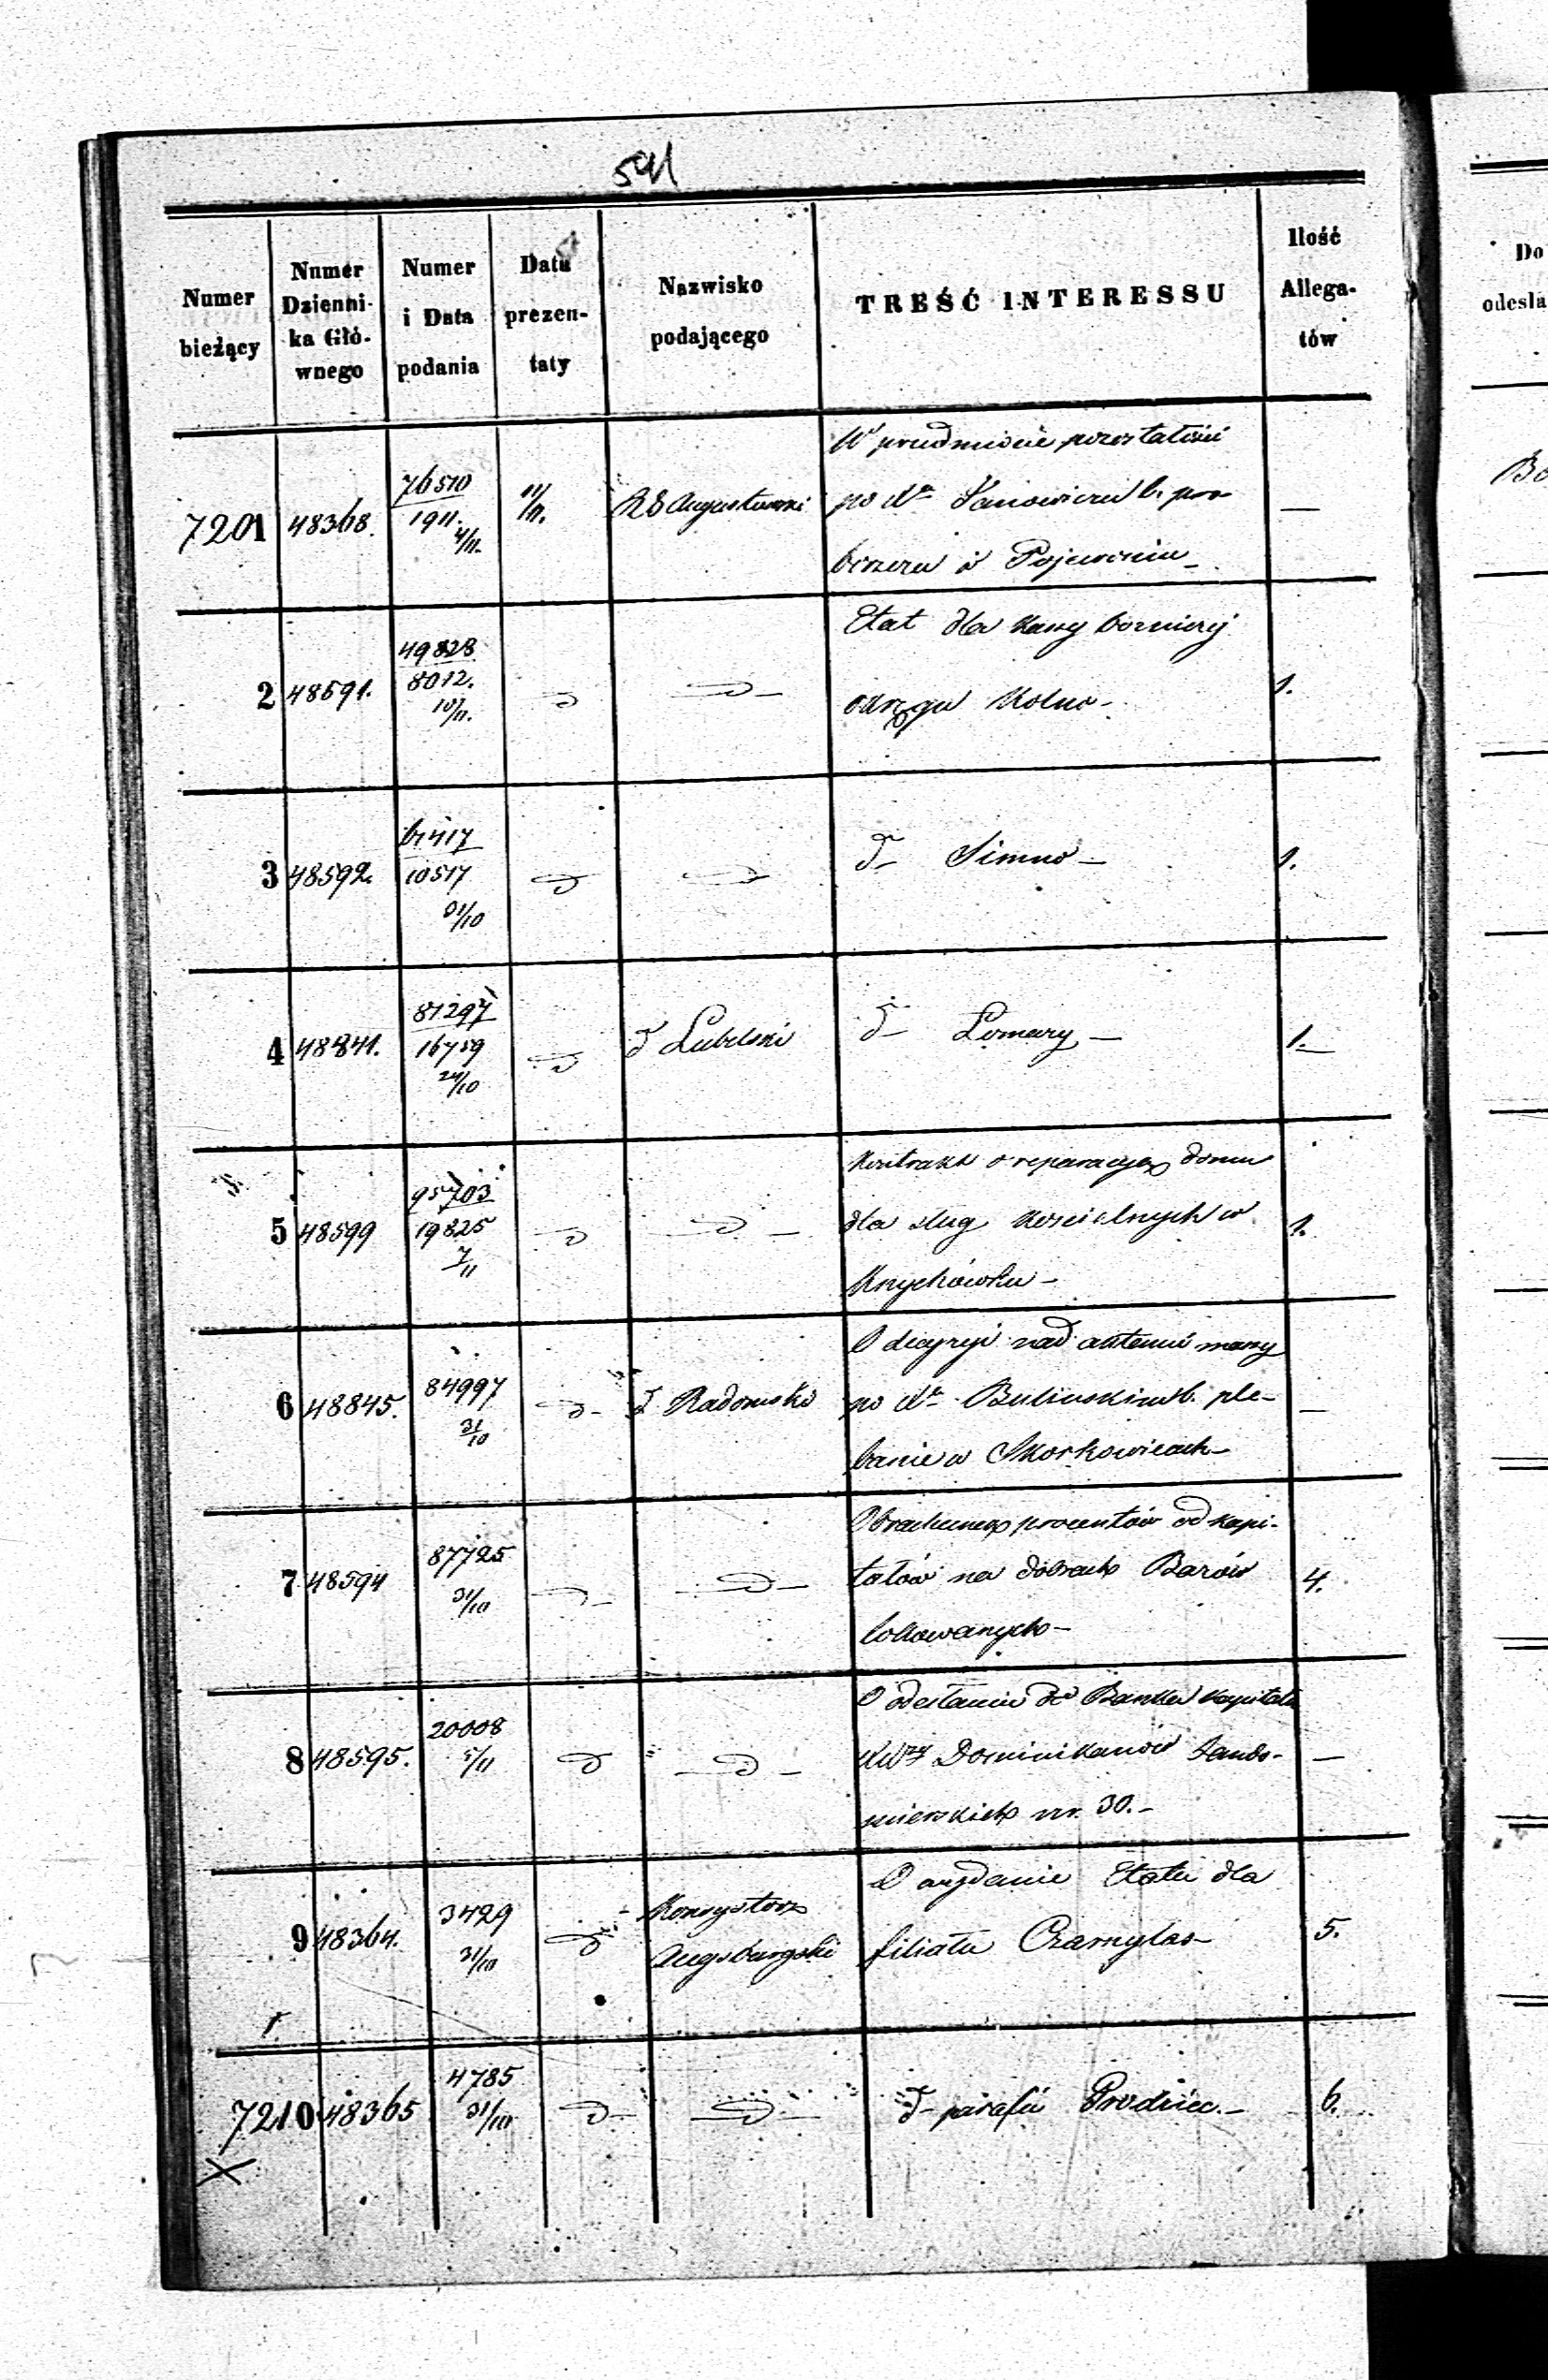 541
Numer bieżący
Numer Dzienni-ka Głó-wnego
Numer i Data podania
Data prezen-taty
Nazwisko podającego
TREŚĆ INTERESSU
Ilość Allega-tów
Do
odesła
7201 48368. 76510 / 1911. 4/11. 11/11. RG Augustowski
W przedmiocie pozostałości
po Xa Janowiczu b. pro-
boszczu w Pojewoniu —
Bo
2 48591. 49828 / 8012. 10/11. 1.
Etat dla Kassy bożniczej
okręgu Kolno —
3 48592. 61417 / 10517 31/10 d — Simno — 1.
4 48841. 81297 / 16759 24/10 d Lubelski d — Łomazy — 1.
5 48599 95703 / 19825 7/11 1.
Kontrakt o reparacyą domu
dla sług Kościelnych w
Knychówku —
6 48845. 84997 31/10 d Radomski —
O decyzyi nad aktami massy
po Xa Bulinskim b. ple-
banie w Skorkowicach —
7 48594 87725 31/10 4.
Obrachunek procentów od kapi-
tałów na dobrach Barów
lokowanych —
8 48595. 20008 5/11 —
O odesłaniu do Banku kapitału
XXży Dominikanów Sando-
mierskich nr. 30. —
9 48364. 3429 31/10 Konsystorz Augsburgski 5.
O wydanie Etatu dla
filiału Czarnylas —
7210 48365 4785 31/10 d — parafii Prodziec. — 6.